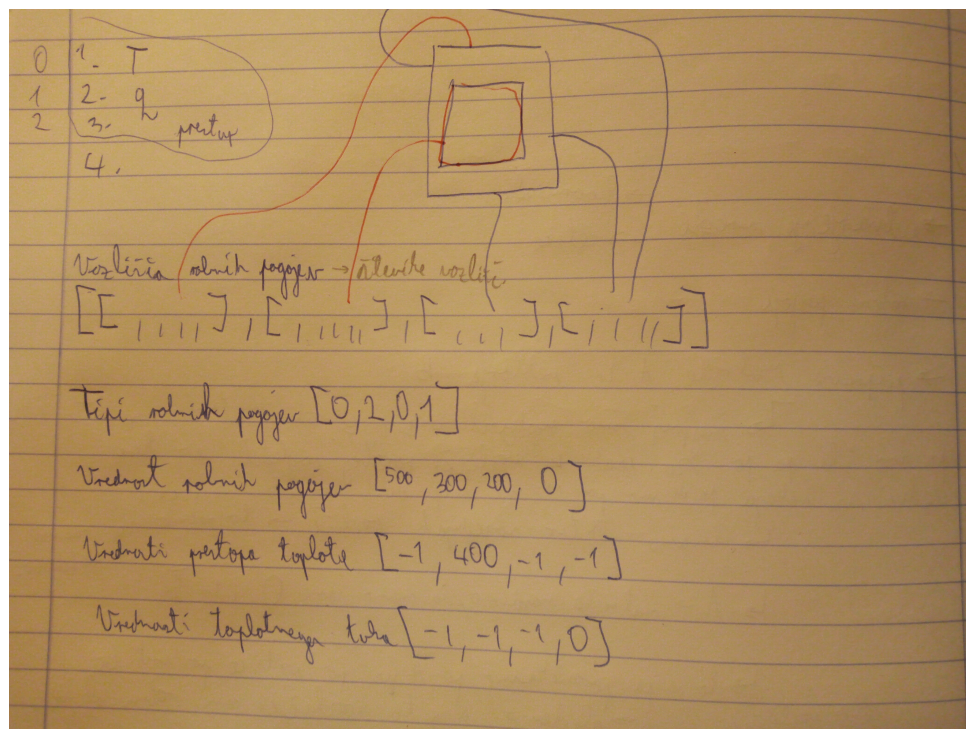 0 1. T
1 2. q
2 3. prestop
4.
Vozlišča robnih pogojev → številke vozlišč
[[ , , , , ], [ , , , , , ], [ , , , ], [ , , , , , ]]
Tipi robnih pogojev [0, 2, 0, 1]
Vrednost robnih pogojev [500, 300, 200, 0]
Vrednosti prestopa toplote [-1, 400, -1, -1]
Vrednosti toplotnega toka [-1, -1, -1, 0]